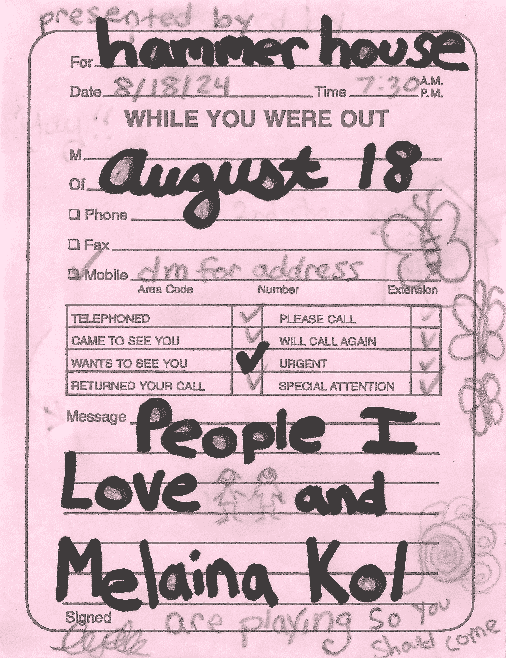 presented by
For hammer house
Date 8/18/24 Time 7:30 A.M. P.M.
WHILE YOU WERE OUT
M
Of August 18
Phone
Fax
Mobile dm for address
Area Code Number Extension
TELEPHONED PLEASE CALL
CAME TO SEE YOU WILL CALL AGAIN
WANTS TO SEE YOU URGENT
RETURNED YOUR CALL SPECIAL ATTENTION
Message People I
Love and
Melaina Kol
Signed are playing so you
should come